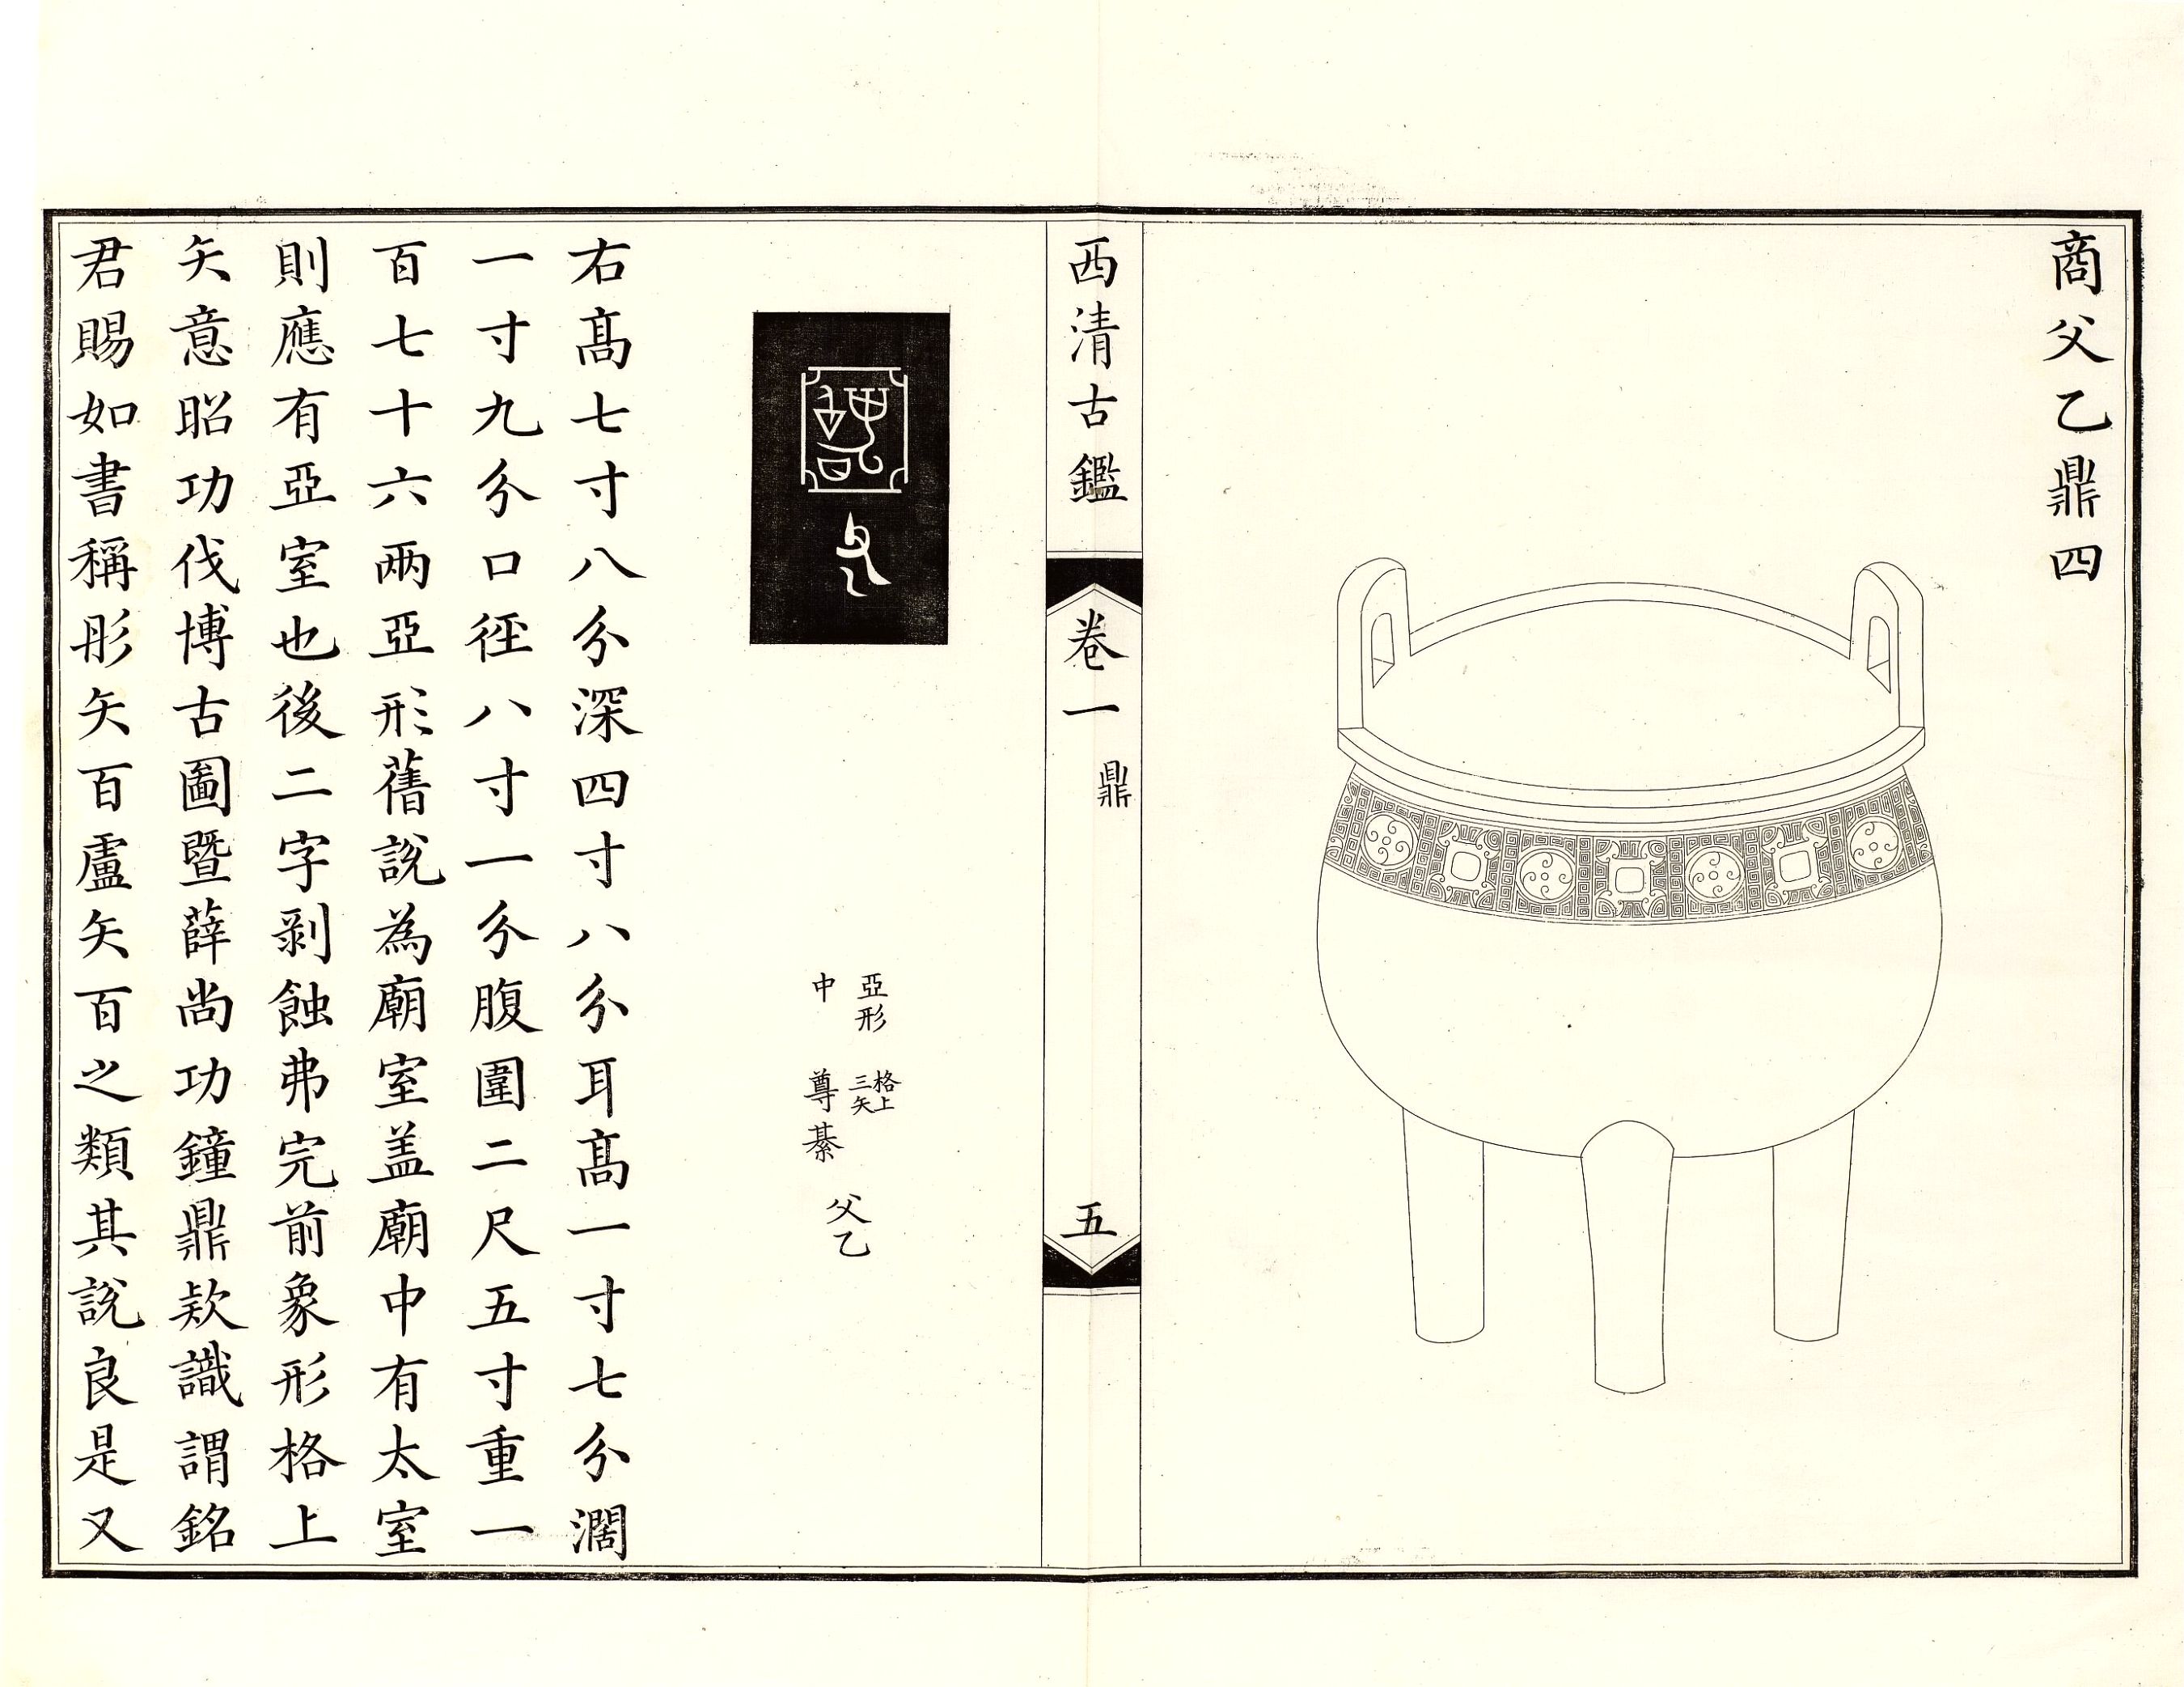 商父乙鼎四
西清古鑑
卷一
鼎
五
亞形
中
格上
三矢
尊綦
父乙
右高七寸八分深四寸八分耳高一寸七分濶
一寸九分口徑八寸一分腹圍二尺五寸重一
百七十六兩亞形舊說為廟室盖廟中有太室
則應有亞室也後二字剥蝕弗完前象形格上
矢意昭功伐博古圖暨薛尚功鐘鼎欵識謂銘
君賜如書稱彤矢百盧矢百之類其說良是又